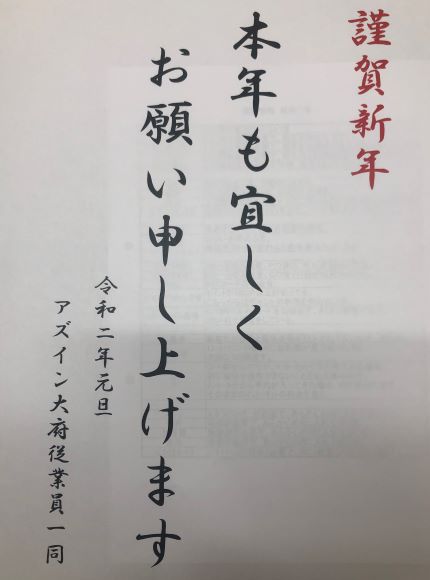 謹賀新年
本年も宜しく
お願い申し上げます
令和二年元旦
アズイン大府従業員一同